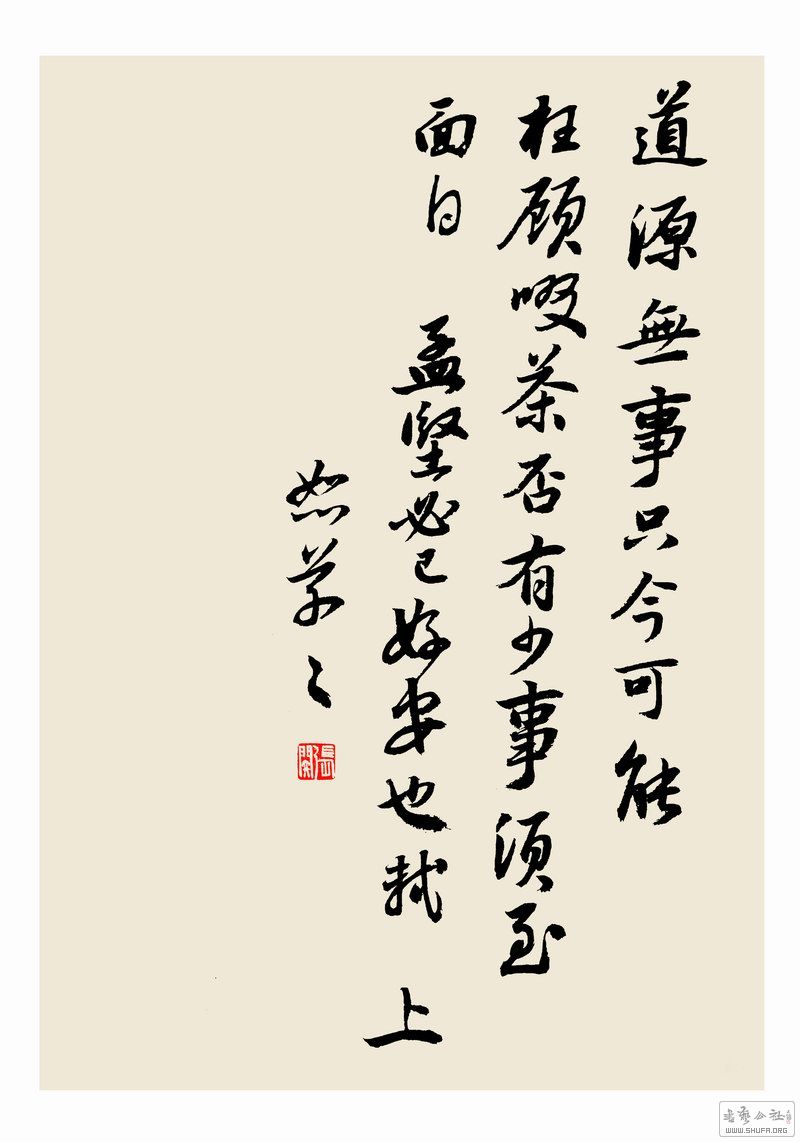 道源無事只今可能
枉顾啜茶否有少事须至
面白 孟坚必已好安也轼 上
恕草々
書艺公社
WWW.SHUFA.ORG